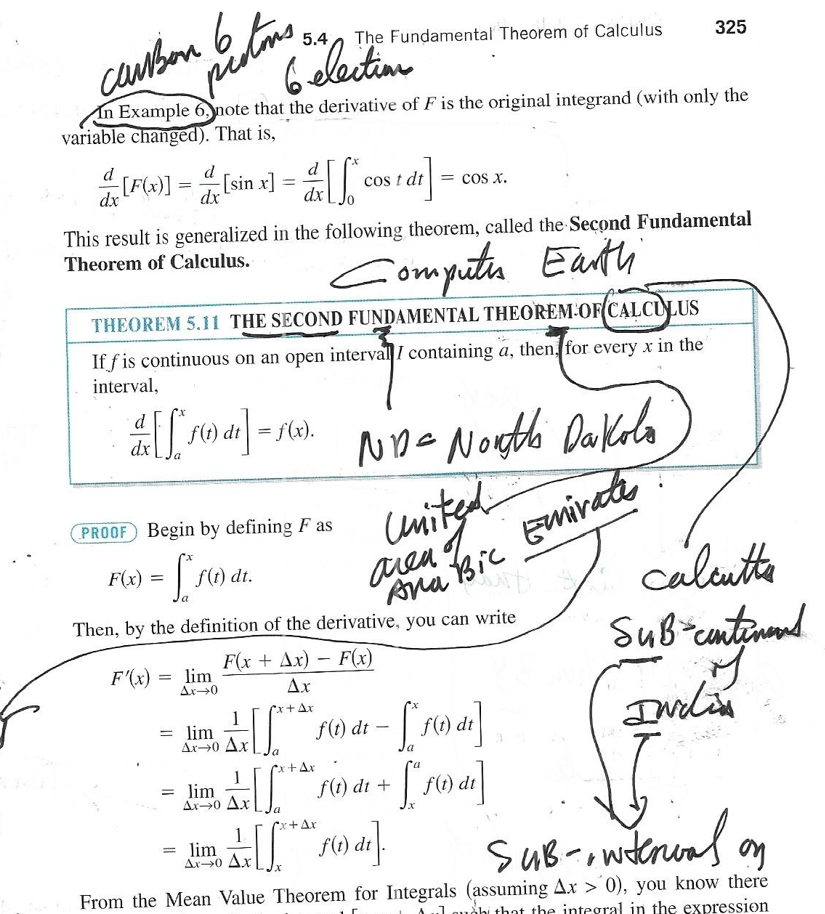 carbon 6
protons
5.4 The Fundamental Theorem of Calculus 325
6 election
In Example 6, note that the derivative of F is the original integrand (with only the
variable changed). That is,
d/dx [F(x)] = d/dx [sin x] = d/dx [∫_0^x cos t dt] = cos x.
This result is generalized in the following theorem, called the Second Fundamental
Theorem of Calculus.
Computer Earth
THEOREM 5.11 THE SECOND FUNDAMENTAL THEOREM OF CALCULUS
If f is continuous on an open interval I containing a, then, for every x in the
interval,
d/dx [∫_a^x f(t) dt] = f(x).
ND = North Dakota
PROOF Begin by defining F as
United
area of
Ana Bic Emirates
F(x) = ∫_a^x f(t) dt.
calcutta
Then, by the definition of the derivative, you can write
SUB-continent
of
India
F′(x) = lim_{Δx→0} (F(x + Δx) − F(x))/Δx
= lim_{Δx→0} 1/Δx [∫_a^{x+Δx} f(t) dt − ∫_a^x f(t) dt]
= lim_{Δx→0} 1/Δx [∫_a^{x+Δx} f(t) dt + ∫_x^a f(t) dt]
= lim_{Δx→0} 1/Δx [∫_x^{x+Δx} f(t) dt].
SUB-interval on
From the Mean Value Theorem for Integrals (assuming Δx > 0), you know there
such that the integral in the expression